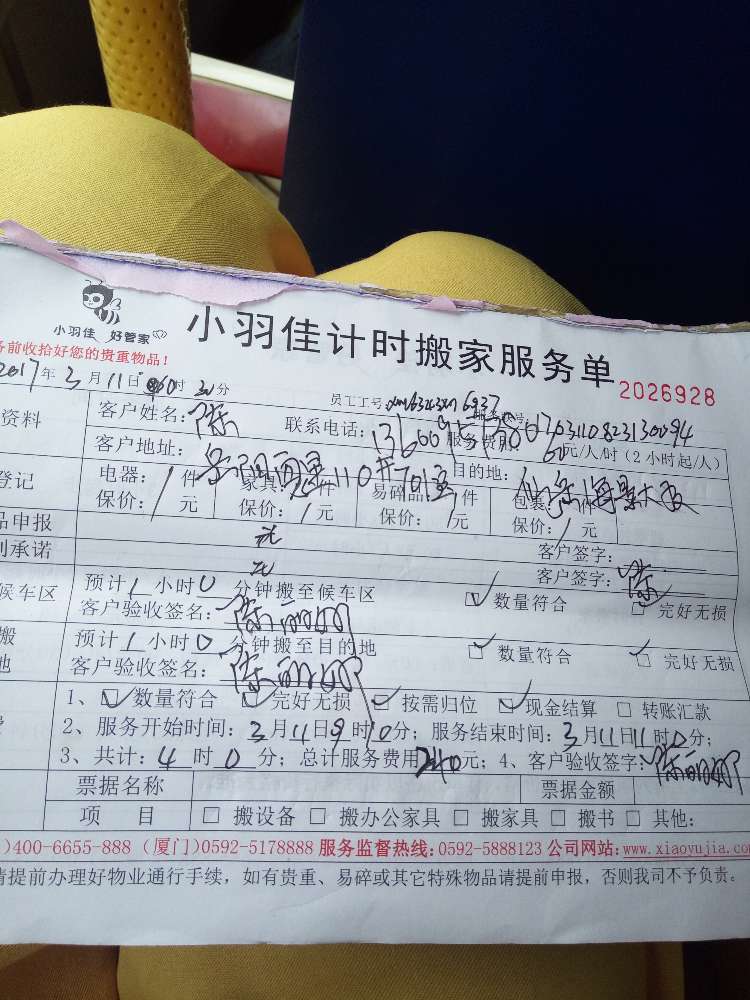 小羽佳 好管家
小羽佳计时搬家服务单
2026928
务前收拾好您的贵重物品!
2017年3月11日 时30分
员工工号:
资料
客户姓名:陈
联系电话:
服务费用: 60元/人/时(2小时起/人)
客户地址: 110#701室
目的地: 海景大厦
登记
电器:/件 家具: 件 易碎品:/件 包装:/件
保价:/元 保价:/元 保价:/元 保价:/元
品申报
无
客户签字:陈
别承诺
无
客户签字:陈
候车区
预计1小时0分钟搬至候车区
数量符合 完好无损
客户验收签名:陈丽娜
搬
地
预计1小时0分钟搬至目的地
数量符合 完好无损
客户验收签名:陈丽娜
1、数量符合 完好无损 按需归位 现金结算 转账汇款
2、服务开始时间:3月11日9时10分;服务结束时间:3月11日11时0分;
3、共计:4时0分;总计服务费用240元;4、客户验收签字:陈丽娜
票据名称 票据金额
项 目 搬设备 搬办公家具 搬家具 搬书 其他:
)400-6655-888(厦门)0592-5178888 服务监督热线:0592-5888123 公司网站:www.xiaoyujia.com
请提前办理好物业通行手续,如有贵重、易碎或其它特殊物品请提前申报,否则我司不予负责。